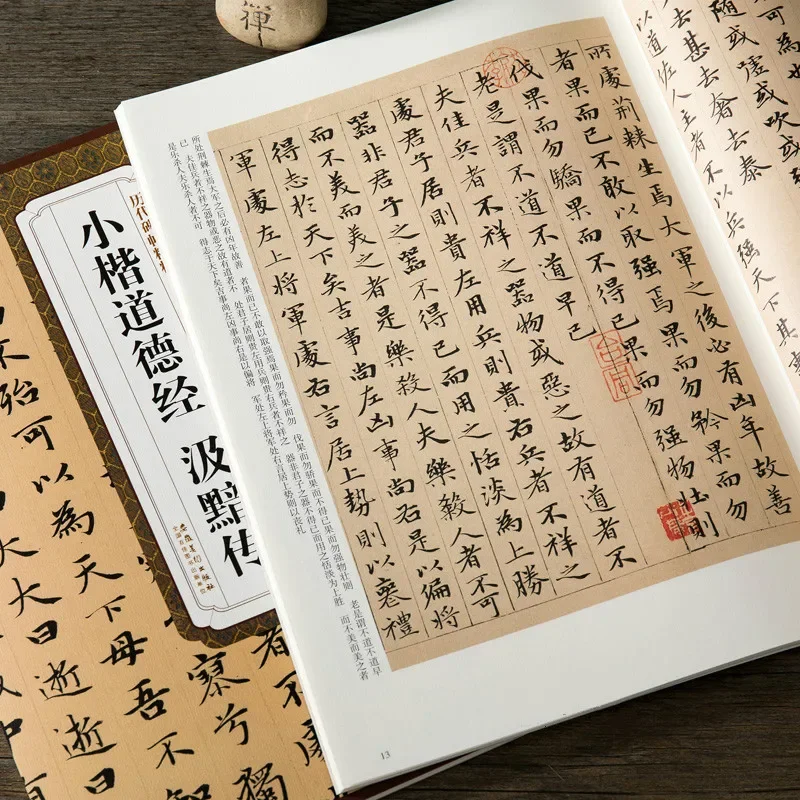 禪
可為也
随或嘘或吹或
去甚去奢去泰
以道佐人主者不以兵强天下其事
所處荆棘生焉大軍之後必有凶年故善
者果而已不敢以取强焉果而勿矜果而勿
伐果而勿驕果而不得已果而勿强物壮則
老是謂不道不道早已
夫佳兵者不祥之器物或惡之故有道者不
處君子居則貴左用兵則貴右兵者不祥之
器非君子之器不得已而用之恬淡為上勝
而不美而美之者是樂殺人夫樂殺人者不可
得志於天下矣吉事尚左凶事尚右是以偏將
軍處左上將軍處右言居上勢則以喪禮
所处荆棘生焉大军之后必有凶年故善 者果而已不敢以取强焉果而勿矜果而勿 伐果而勿骄果而不得已果而勿强物壮则 老是谓不道不道早
已 夫佳兵者不祥之器物或恶之故有道者不 处君子居则贵左用兵则贵右兵者不祥之 器非君子之器不得已而用之恬淡为上胜 而不美而美之者
是乐杀人夫乐杀人者不可 得志于天下矣吉事尚左凶事尚右是以偏将 军处左上将军处右言居上势则以丧礼
13
历代碑帖精粹
小楷道德经 汲黯传
安徽美术出版社
全国百佳图书出版单位
寥兮獨
不殆可以為天下母吾不
大大曰逝逝曰